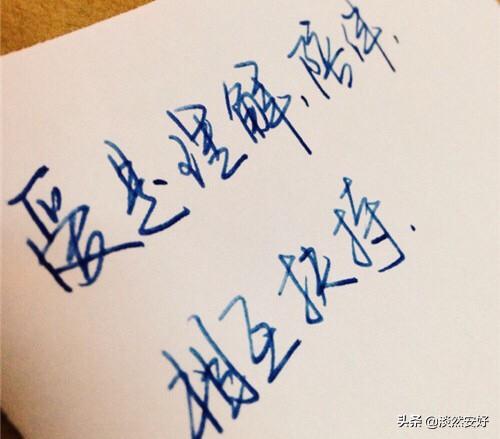 爱是理解、陪伴、
相互扶持.
头条 @淡然安好